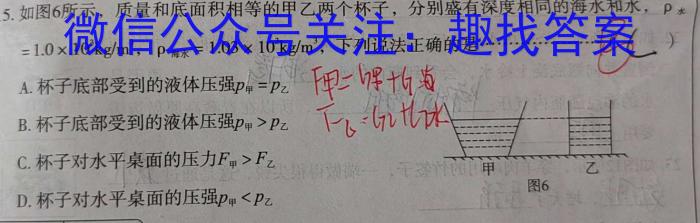 5. 如图6所示，质量和底面积相等的甲乙两个杯子，分别盛有深度相同的海水和水，ρ水
微信公众号关注：趣找答案
=1.0×10 kg/m, ρ海水=1.03×10 kg/m³ 下列说法正确的是
A. 杯子底部受到的液体压强p甲=p乙
F甲=G甲+G海
B. 杯子底部受到的液体压强p甲>p乙
F乙=G乙+G水
C. 杯子对水平桌面的压力F甲>F乙
甲 乙
D. 杯子对水平桌面的压强p甲<p乙
图6